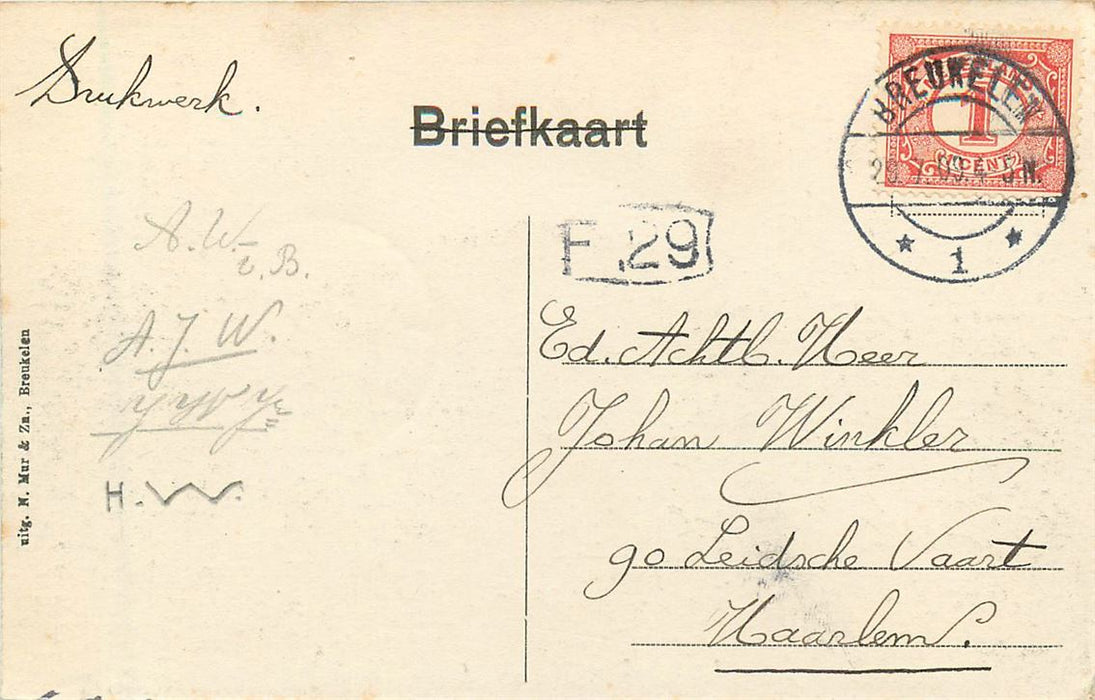 Drukwerk.
Briefkaart
BREUKELEN
1 CENT
1
F 29
A. W. v. B.
A. J. W.
H. W.
Ed. Achtb. Heer
Johan Winkler
90 Leidsche Vaart
Haarlem.
uitg. N. Mur & Zn., Breukelen